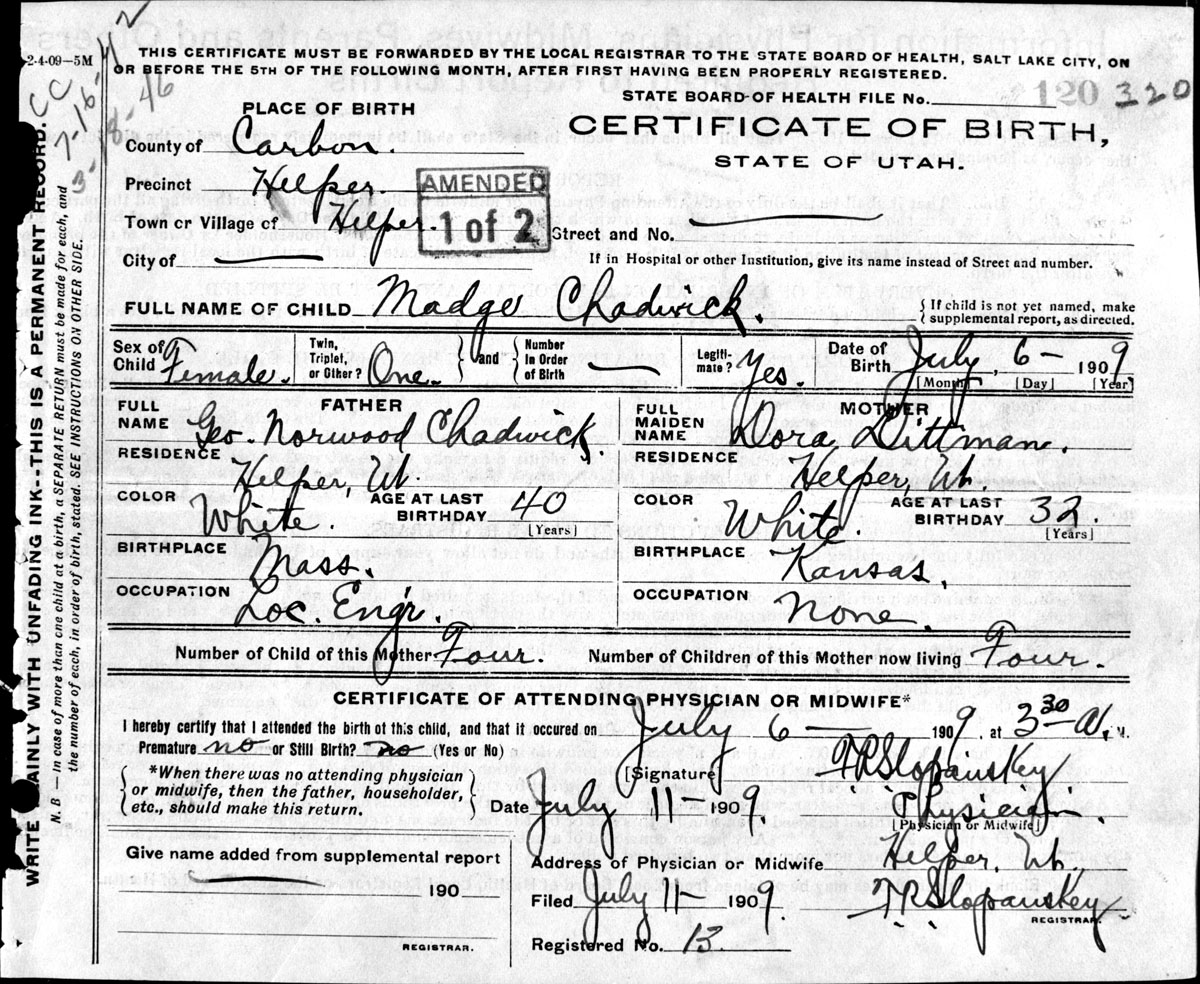 2-4-09—5M
THIS CERTIFICATE MUST BE FORWARDED BY THE LOCAL REGISTRAR TO THE STATE BOARD OF HEALTH, SALT LAKE CITY, ON
OR BEFORE THE 5TH OF THE FOLLOWING MONTH, AFTER FIRST HAVING BEEN PROPERLY REGISTERED.
STATE BOARD OF HEALTH FILE No. 120 320
PLACE OF BIRTH
CERTIFICATE OF BIRTH,
STATE OF UTAH.
County of Carbon.
Precinct Helper.
AMENDED
1 of 2
Town or Village of Helper.
Street and No.
City of
If in Hospital or other Institution, give its name instead of Street and number.
FULL NAME OF CHILD Madge Chadwick.
{ If child is not yet named, make
supplemental report, as directed.
Sex of Child Female.
Twin, Triplet, or Other? One.
and
Number In Order of Birth
Legiti-mate? Yes.
Date of Birth July 6 — 1909
[Month] [Day] [Year]
FATHER
FULL NAME Geo. Norwood Chadwick.
RESIDENCE Helper, Ut.
COLOR White.
AGE AT LAST BIRTHDAY 40
[Years]
BIRTHPLACE Mass.
OCCUPATION Loc. Engr.
MOTHER
FULL MAIDEN NAME Dora Dittman.
RESIDENCE Helper, Ut.
COLOR White.
AGE AT LAST BIRTHDAY 32.
[Years]
BIRTHPLACE Kansas.
OCCUPATION None.
Number of Child of this Mother Four.
Number of Children of this Mother now living Four.
CERTIFICATE OF ATTENDING PHYSICIAN OR MIDWIFE*
I hereby certify that I attended the birth of this child, and that it occured on July 6 — 1909, at 3 30 A. M.
Premature no or Still Birth? no (Yes or No)
*When there was no attending physician
or midwife, then the father, householder,
etc., should make this return.
[Signature] T R Slopanskey
Date July 11 1909.
Physician.
[Physician or Midwife]
Give name added from supplemental report
190
REGISTRAR.
Address of Physician or Midwife Helper, Ut.
Filed July 11 - 1909.
T R Slopanskey
REGISTRAR.
Registered No. 13.
WRITE PLAINLY WITH UNFADING INK--THIS IS A PERMANENT RECORD.
N. B — In case of more than one child at a birth, a SEPARATE RETURN must be made for each, and
the number of each, in order of birth, stated. SEE INSTRUCTIONS ON OTHER SIDE.